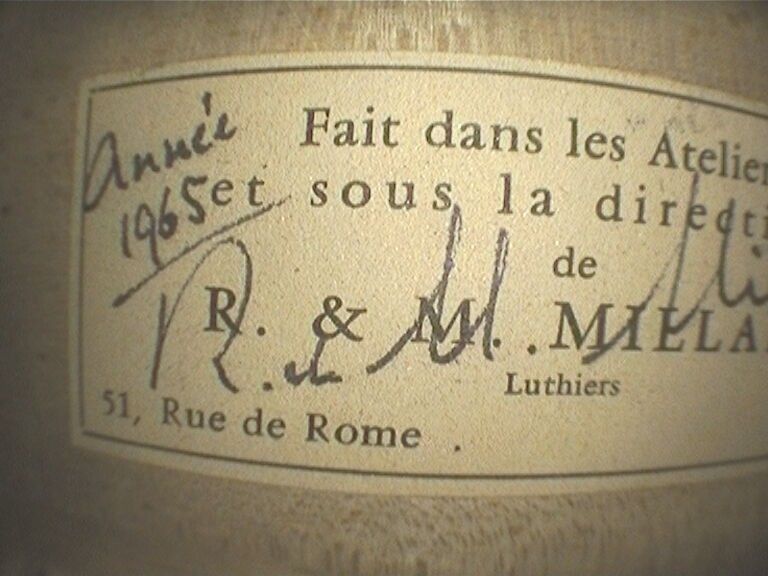 Année
1965
Fait dans les Atelier
et sous la directi
de
R. & M. MILLA
R. et M. Mi
Luthiers
51, Rue de Rome .